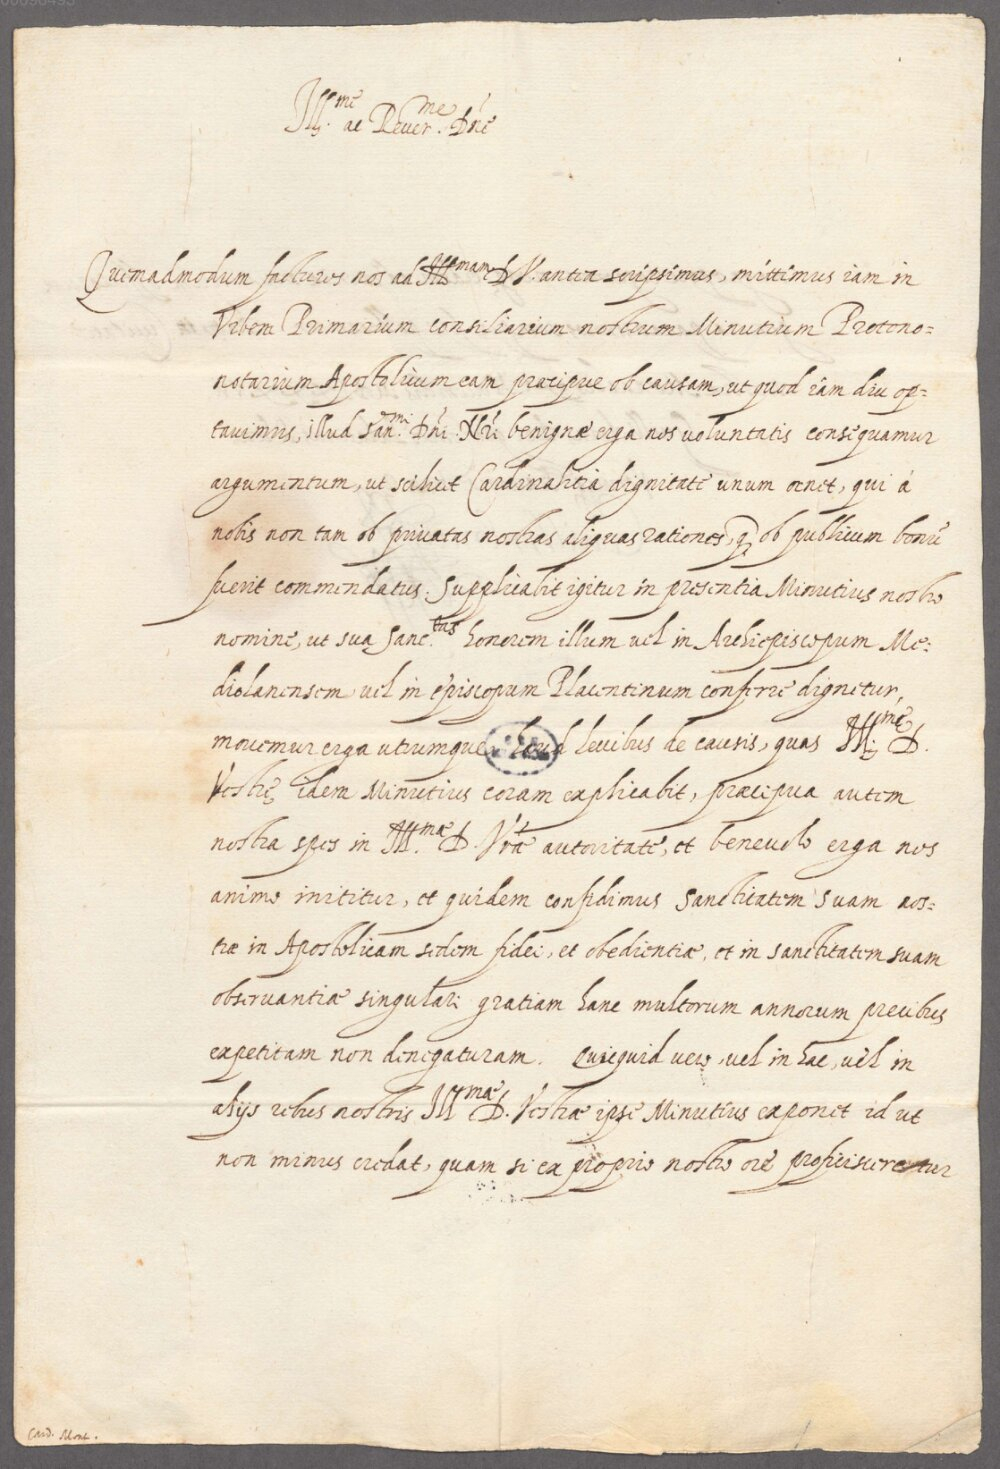 Ill.me ac Rever.me Dne
Quemadmodum facturos nos ad Ill.mam D. V. antea scripsimus, mittimus iam in
Vrbem Primarium consiliarium nostrum Minutium Protono=
notarium Apostolicum eam præcipue ob causam, ut quod iam diu op=
tauimus, illud San.mi Dni Nri benignæ erga nos uoluntatis consequamur
argumentum, ut scilicet Cardinalitia dignitate unum ornet, qui à
nobis non tam ob priuatas nostras aliquas rationes, q ob publicum bonū
fuerit commendatus. Supplicabit igitur in presentia Minutius nostro
nomine, ut sua Sanc.tas honorem illum uel in Archiepiscopum Me=
diolanensem, uel in episcopum Placentinum conferre dignetur,
mouemur erga utrumque haud leuibus de causis, quas Ill.me D.
Vestrę idem Minutius coram explicabit, præcipua autem
nostra spes in Ill.mæ D. Vræ autoritate, et beneuolo erga nos
animo inititur, et quidem confidimus Sanctitatem suam nos=
træ in Apostolicam sedem fidei, et obedientiæ, et in sanctitatem suam
obseruantiæ singulari gratiam hanc multorum annorum precibus
expetitam non denegaturam. Quicquid uero, uel in hac, uel in
alijs rebus nostris Ill.mæ D. Vestræ ipse Minutius exponet id ut
non minus credat, quam si ex proprio nostro ore proficisceretur
Card. Mont.